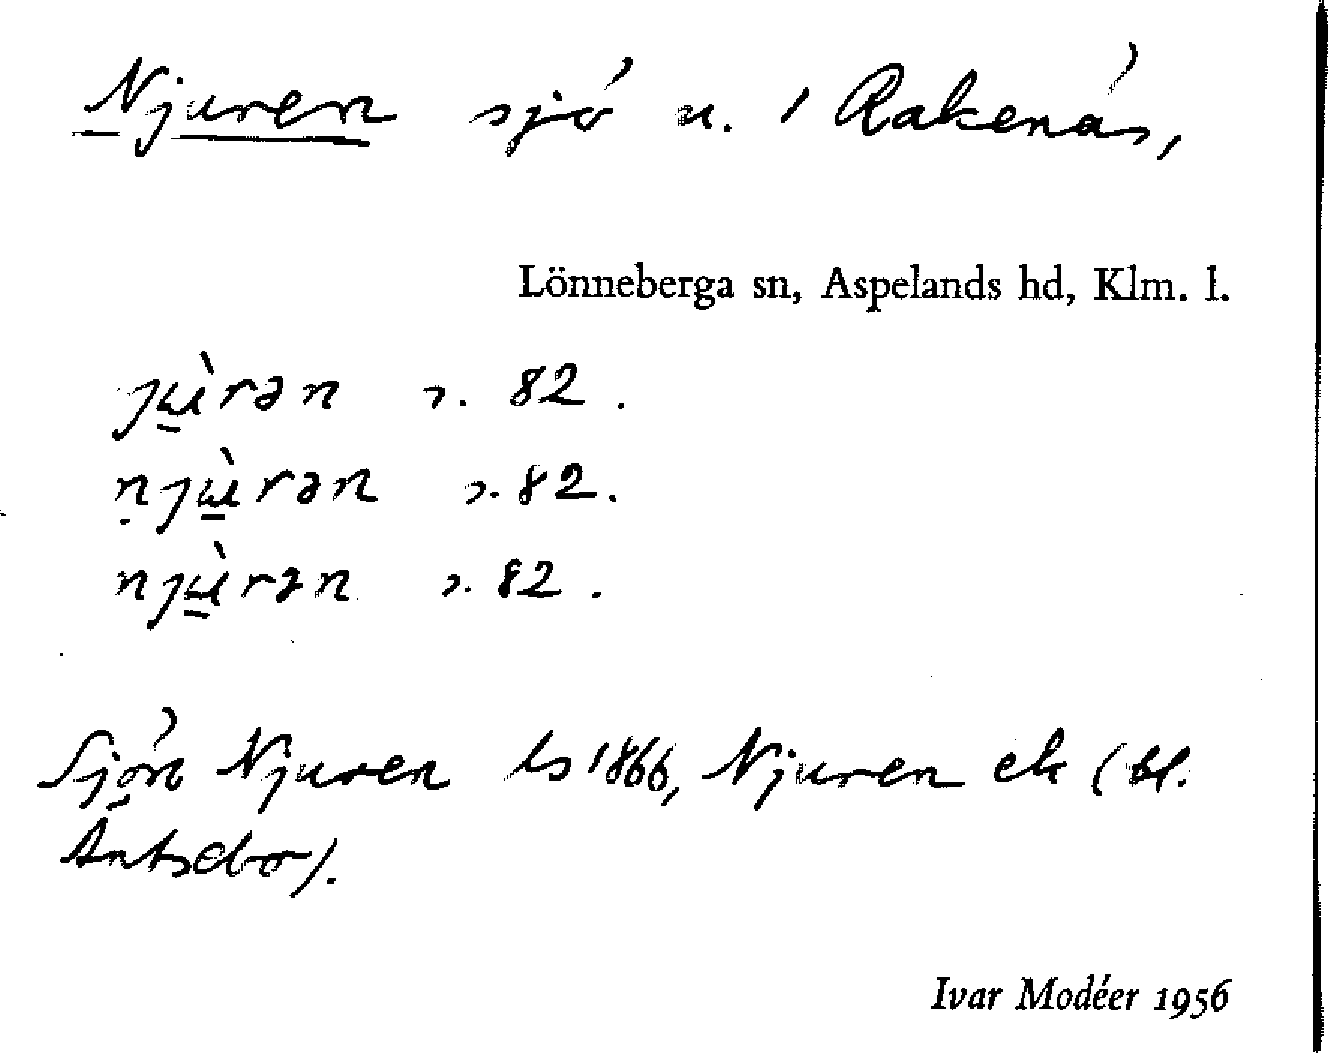 Njuren sjö n. i Rakenäs,
Lönneberga sn, Aspelands hd, Klm. l.
jù̱rən s. 82.
ṇjù̱rən s. 82.
njù̱rən s. 82.
Sjön Njuren ls 1866, Njuren ek (bl.
Äntsebo).
Ivar Modéer 1956